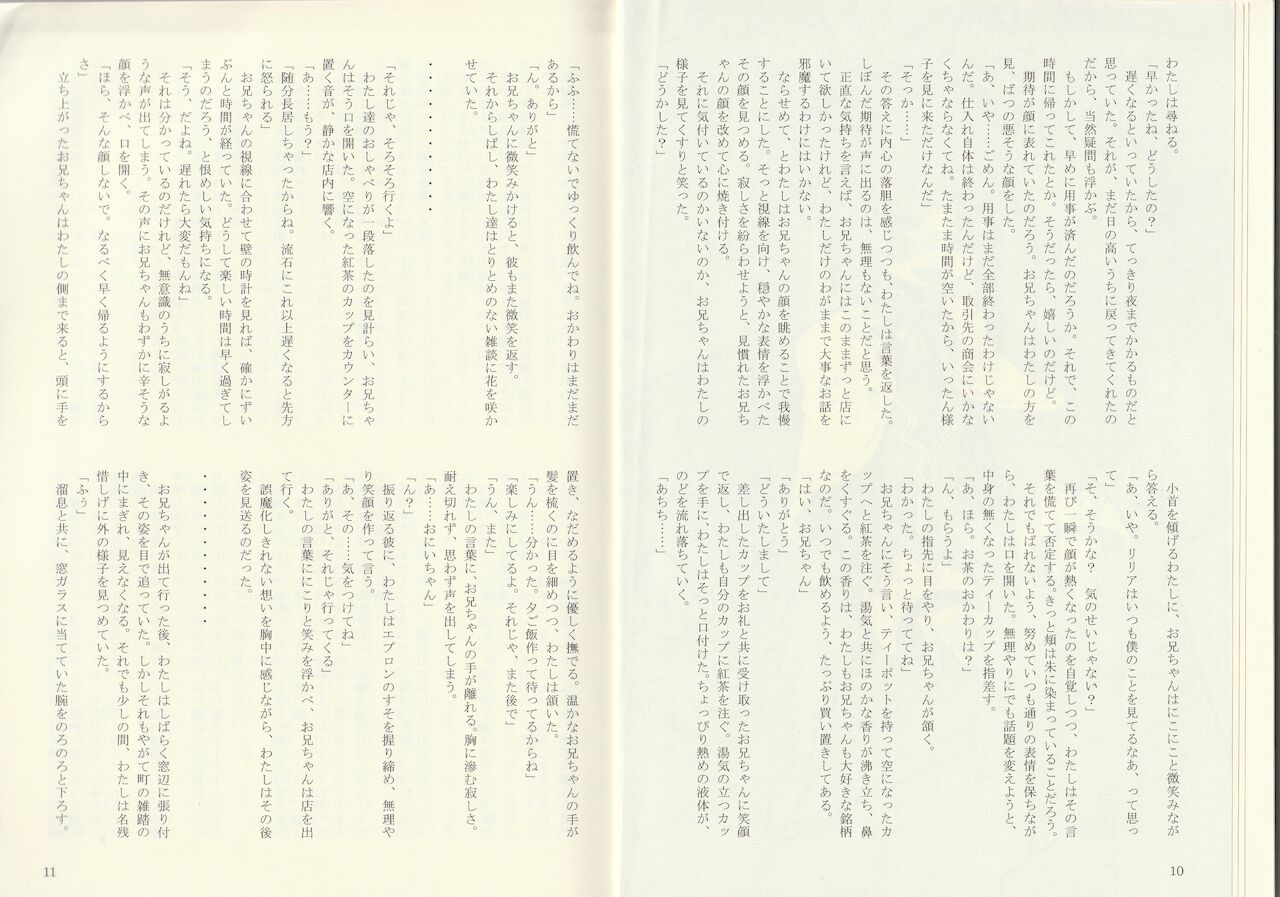 わたしは尋ねる。
「早かったね、どうしたの？」
　遅くなるといっていたから、てっきり夜までかかるものだと
思っていた。それが、まだ日の高いうちに戻ってきてくれたの
だから、当然疑問も浮かぶ。
　もしかして、早めに用事が済んだのだろうか。それで、この
時間に帰ってこれたとか。そうだったら、嬉しいのだけど。
　期待が顔に表れていたのだろう。お兄ちゃんはわたしの方を
見、ばつの悪そうな顔をした。
「あ、いや……ごめん。用事はまだ全部終わったわけじゃない
んだ。仕入れ自体は終わったんだけど、取引先の商会にいかな
くちゃならなくてね。たまたま時間が空いたから、いったん様
子を見に来ただけなんだ」
「そっか……」
　その答えに内心の落胆を感じつつも、わたしは言葉を返した。
しぼんだ期待が声に出るのは、無理もないことだと思う。
　正直な気持ちを言えば、お兄ちゃんにはこのままずっと店に
いて欲しかったけれど、わたしだけのわがままで大事なお話を
邪魔するわけにはいかない。
　ならせめて、とわたしはお兄ちゃんの顔を眺めることで我慢
することにした。そっと視線を向け、穏やかな表情を浮かべた
その顔を見つめる。寂しさを紛らわせようと、見慣れたお兄ち
ゃんの顔を改めて心に焼き付ける。
　それに気付いているのかいないのか、お兄ちゃんはわたしの
様子を見てくすりと笑った。
「どうかした？」
　小首を傾げるわたしに、お兄ちゃんはにこにこと微笑みなが
ら答える。
「あ、いや。リリアはいつも僕のことを見てるなあ、って思っ
て」
「そ、そうかな？　気のせいじゃない？」
　再び一瞬で顔が熱くなったのを自覚しつつ、わたしはその言
葉を慌てて否定する。きっと頬は朱に染まっていることだろう。
　それでもばれないよう、努めていつも通りの表情を保ちなが
ら、わたしは口を開いた。無理やりにでも話題を変えようと、
中身の無くなったティーカップを指差す。
「あ、ほら。お茶のおかわりは？」
「ん、もらうよ」
　わたしの指先に目をやり、お兄ちゃんが頷く。
「わかった。ちょっと待っててね」
　お兄ちゃんにそう言い、ティーポットを持って空になったカ
ップへと紅茶を注ぐ。湯気と共にほのかな香りが沸き立ち、鼻
をくすぐる。この香りは、わたしもお兄ちゃんも大好きな銘柄
なのだ。いつでも飲めるよう、たっぷり買い置きしてある。
「はい、お兄ちゃん」
「ありがとう」
「どういたしまして」
　差し出したカップをお礼と共に受け取ったお兄ちゃんに笑顔
で返し、わたしも自分のカップに紅茶を注ぐ。湯気の立つカッ
プを手に、わたしはそっと口付けた。ちょっぴり熱めの液体が、
のどを流れ落ちていく。
「あちち……」
10
「ふふ……慌てないでゆっくり飲んでね。おかわりはまだまだ
あるから」
「ん。ありがと」
　お兄ちゃんに微笑みかけると、彼もまた微笑を返す。
　それからしばし、わたし達はとりとめのない雑談に花を咲か
せていた。
・・・・・・・・・・・・
「それじゃ、そろそろ行くよ」
　わたし達のおしゃべりが一段落したのを見計らい、お兄ちゃ
んはそう口を開いた。空になった紅茶のカップをカウンターに
置く音が、静かな店内に響く。
「あ……もう？」
「随分長居しちゃったからね。流石にこれ以上遅くなると先方
に怒られる」
　お兄ちゃんの視線に合わせて壁の時計を見れば、確かにずい
ぶんと時間が経っていた。どうして楽しい時間は早く過ぎてし
まうのだろう、と恨めしい気持ちになる。
「そう、だよね。遅れたら大変だもんね」
　それは分かっているのだけれど、無意識のうちに寂しがるよ
うな声が出てしまう。その声にお兄ちゃんもわずかに辛そうな
顔を浮かべ、口を開く。
「ほら、そんな顔しないで。なるべく早く帰るようにするから
さ」
　立ち上がったお兄ちゃんはわたしの側まで来ると、頭に手を
置き、なだめるように優しく撫でる。温かなお兄ちゃんの手が
髪を梳くのに目を細めつつ、わたしは頷いた。
「うん……分かった。夕ご飯作って待ってるからね」
「楽しみにしてるよ。それじゃ、また後で」
「うん、また」
　わたしの言葉に、お兄ちゃんの手が離れる。胸に滲む寂しさ。
耐え切れず、思わず声を出してしまう。
「あ…おにいちゃん」
「ん？」
　振り返る彼に、わたしはエプロンのすそを握り締め、無理や
り笑顔を作って言う。
「あ、その……気をつけてね」
「ありがと、それじゃ行ってくる」
　わたしの言葉ににこりと笑みを浮かべ、お兄ちゃんは店を出
て行く。
　誤魔化しきれない想いを胸中に感じながら、わたしはその後
姿を見送るのだった。
・・・・・・・・・・・・
　お兄ちゃんが出て行った後、わたしはしばらく窓辺に張り付
き、その姿を目で追っていた。しかしそれもやがて町の雑踏の
中にまぎれ、見えなくなる。それでも少しの間、わたしは名残
惜しげに外の様子を見つめていた。
「ふぅ」
　溜息と共に、窓ガラスに当てていた腕をのろのろと下ろす。
11